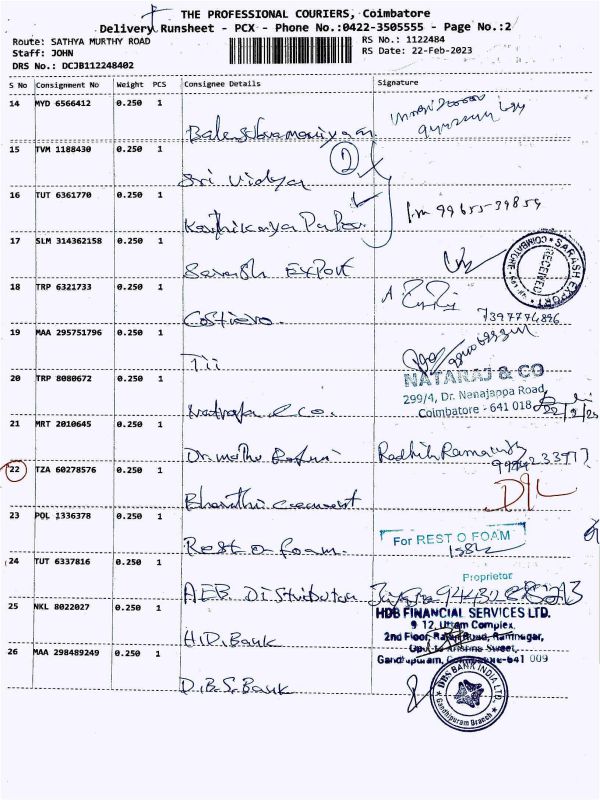 THE PROFESSIONAL COURIERS, Coimbatore
Delivery Runsheet - PCX - Phone No.:0422-3505555 - Page No.:2
Route: SATHYA MURTHY ROAD
RS No.: 1122484
Staff: JOHN
RS Date: 22-Feb-2023
DRS No.: DCJB112248402
S No Consignment No Weight PCS Consignee Details Signature
14 MYD 6566412 0.250 1
Balasubramaniyam
15 TVM 1188430 0.250 1
2
Sri Vidya
16 TUT 6361770 0.250 1
99655-39859
Karthikeya
17 SLM 314362158 0.250 1
Sarash Export
SARASH EXPORT COIMBATORE RECEIVED
18 TRP 6321733 0.250 1
7397774896
19 MAA 295751796 0.250 1
Tii
20 TRP 8080672 0.250 1
NATARAJ & CO
299/4, Dr. Nanajappa Road,
Coimbatore - 641 018
Nataraj & Co.
21 MRT 2010645 0.250 1
Radhik
22 TZA 60278576 0.250 1
Bharathi cement
D/L
23 POL 1336378 0.250 1
For REST O FOAM
Rest o foam.
24 TUT 6337816 0.250 1
Proprietor
AEB Distributor
25 NKL 8022027 0.250 1
HDB FINANCIAL SERVICES LTD.
9 12, Uttam Complex,
2nd Floor, Rajaji Road, Ramnagar,
H.D. Bank
26 MAA 298489249 0.250 1
Gandhipuram, Coimbatore-641 009
D.B.S. Bank
DBS BANK INDIA LTD.
Gandhipuram Branch